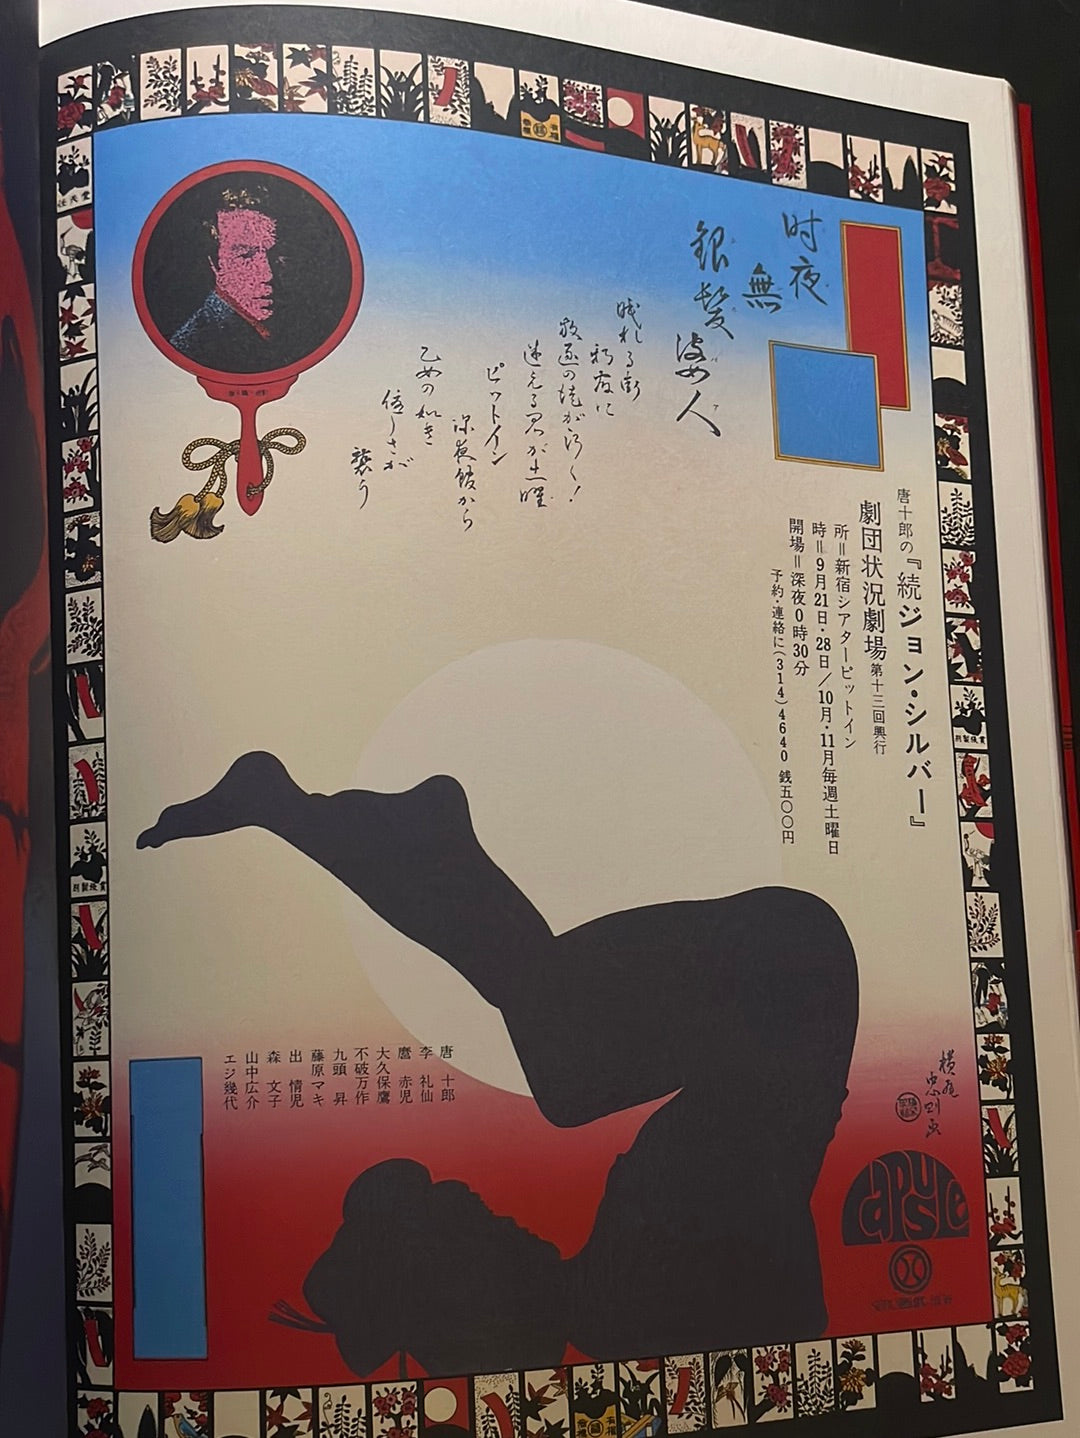 时夜
無
銀髪
婆人
晴れる街
新宿に
敬遠の焼がらく!
迷える君が土曜
ピットイン
深夜館から
乙女の如き
優しさが
襲う
唐十郎の『続ジョン・シルバー』
劇団状況劇場 第十三回興行
所=新宿シアターピットイン
時=9月21日・28日/10月・11月毎週土曜日
開場=深夜0時30分
予約・連絡に(314)4640 銭五〇〇円
唐 十郎
李 礼仙
麿 赤児
大久保鷹
不破万作
九頭 昇
藤原マキ
出 情児
森 文子
山中広介
エジ幾代
横尾忠則画
capsule
任天堂
別製張貫
別製張貫